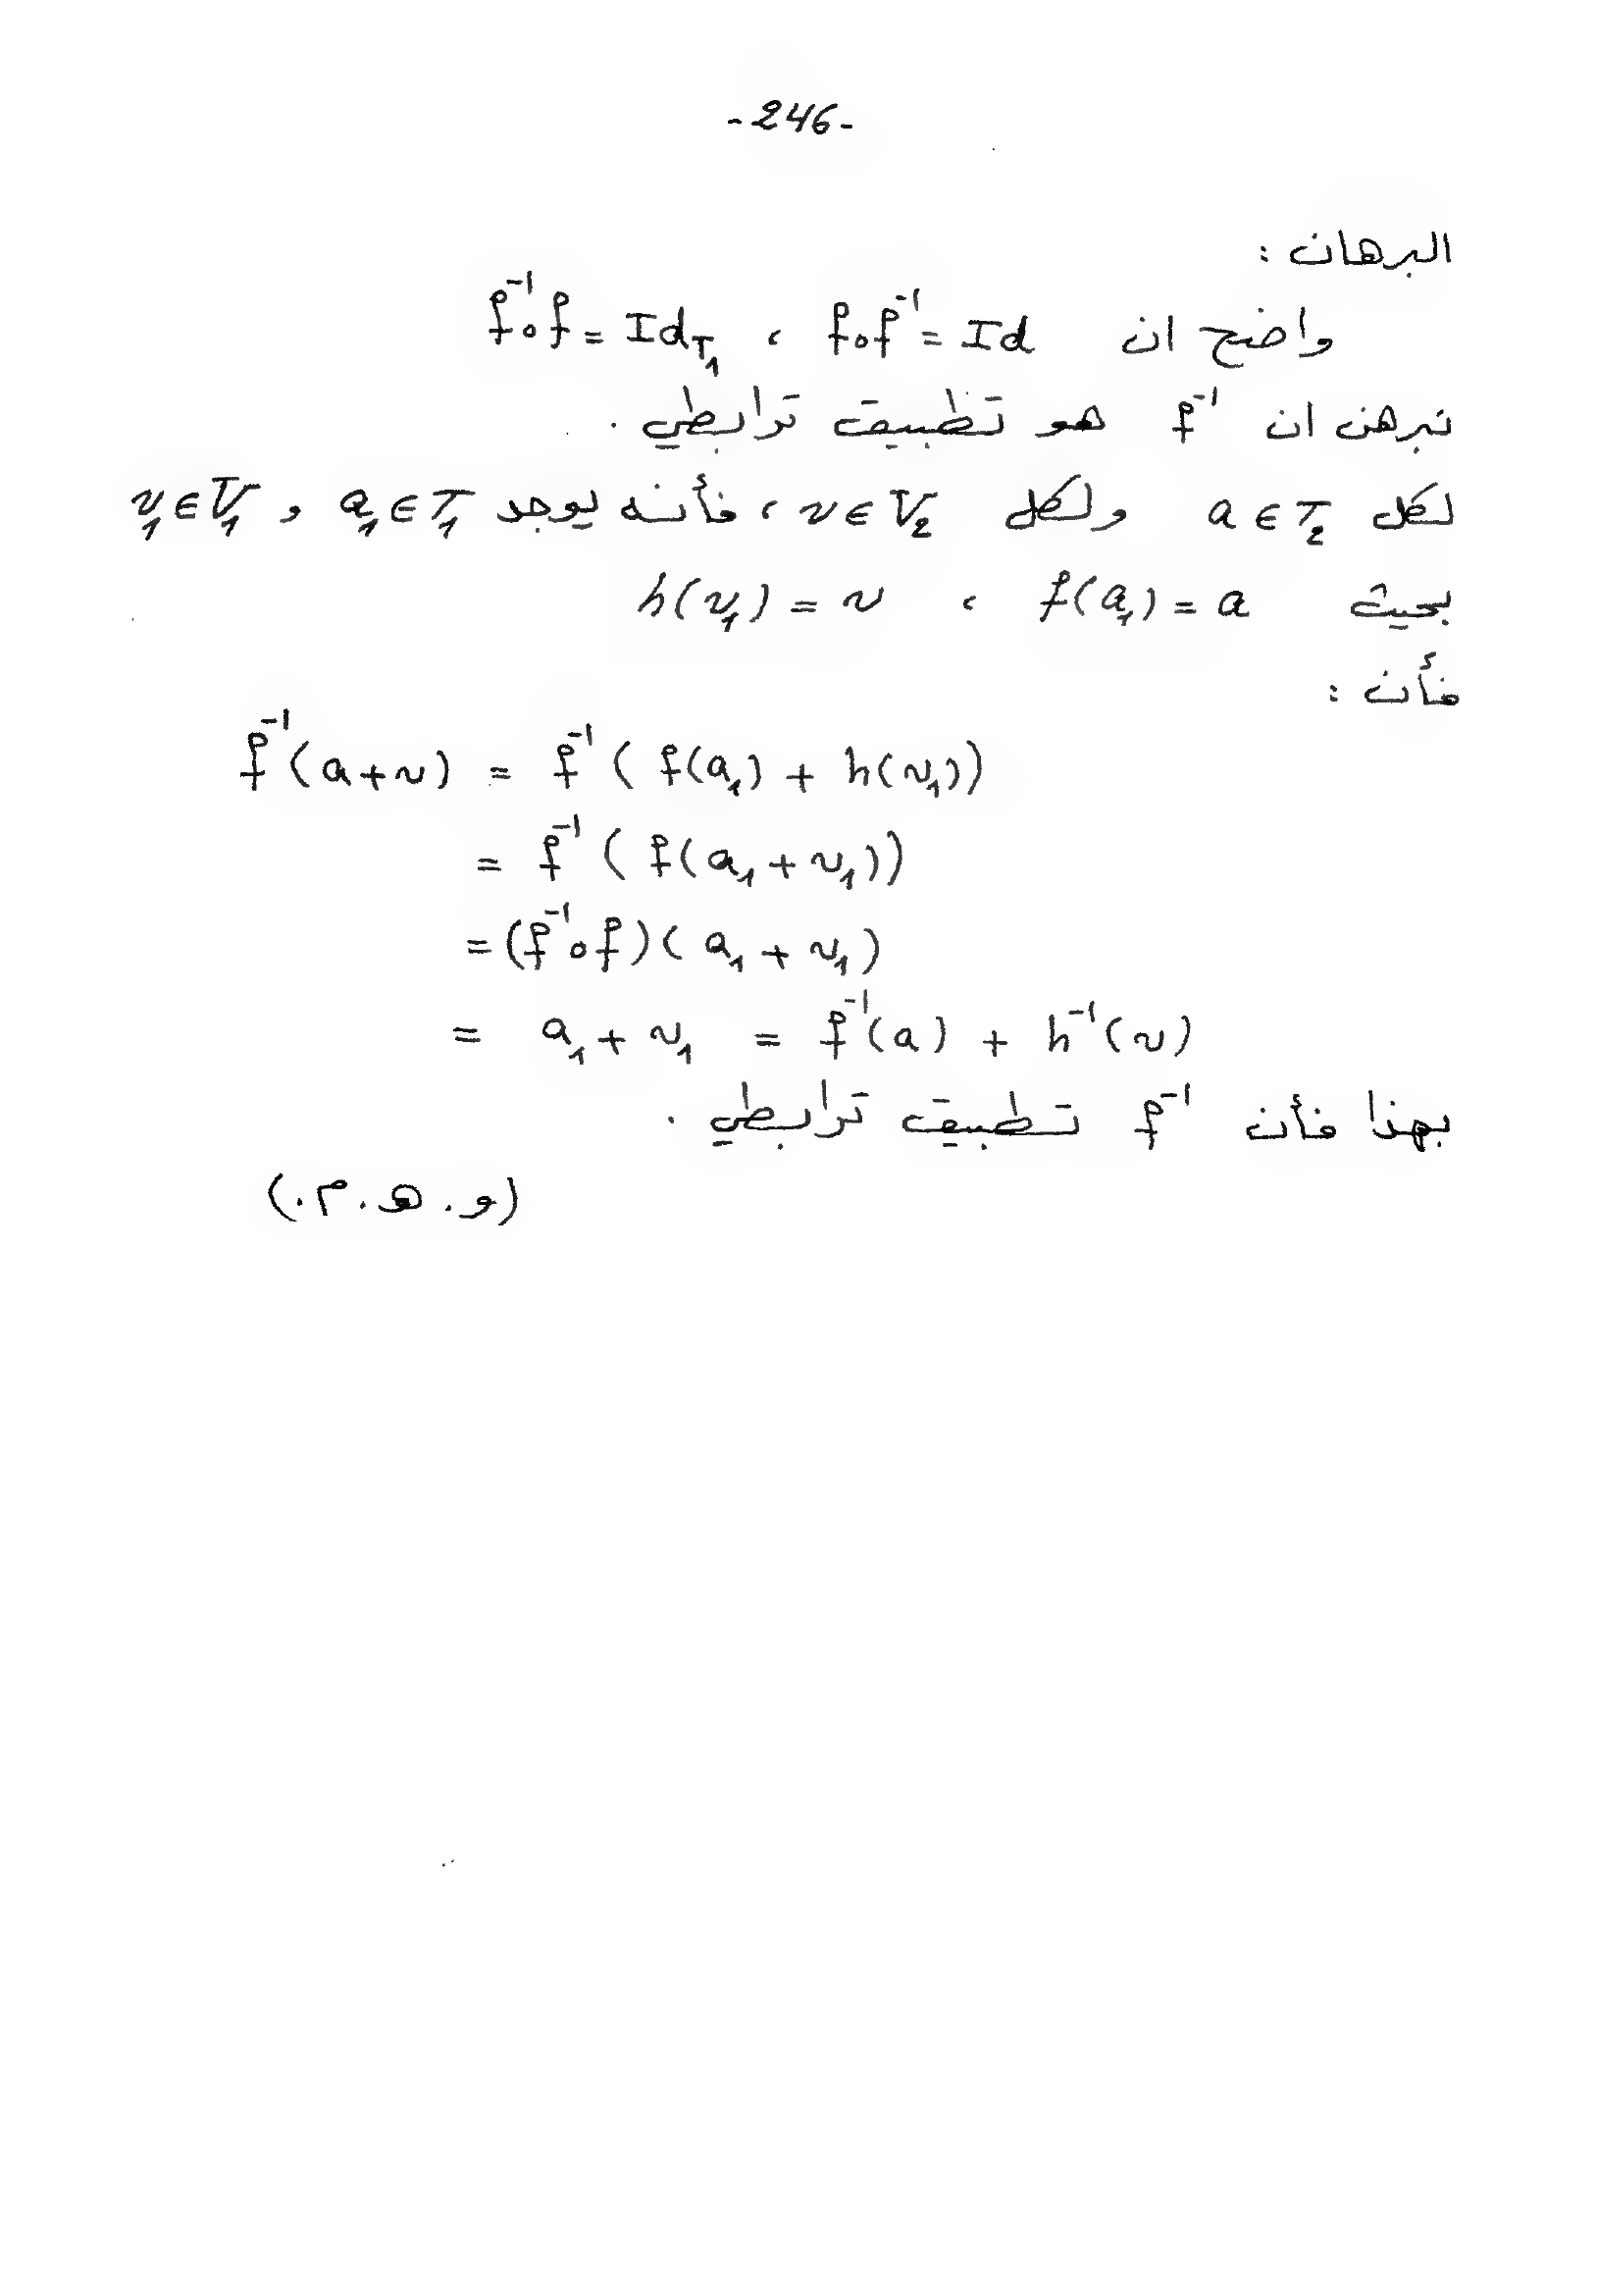 -246-
البرهان :
واضح ان f∘f⁻¹ = Id ، f⁻¹∘f = Id_T₁
نبرهن ان f⁻¹ هو تطبيق ترابطي .
لكل a ∈ T₂ ولكل v ∈ V₂ ، فأنه يوجد a₁ ∈ T₁ و v₁ ∈ V₁
بحيث f(a₁) = a ، h(v₁) = v
فأن :
f⁻¹(a+v) = f⁻¹( f(a₁) + h(v₁))
= f⁻¹ ( f(a₁ + v₁))
= (f⁻¹∘f)( a₁ + v₁)
= a₁ + v₁ = f⁻¹(a) + h⁻¹(v)
بهذا فأن f⁻¹ تطبيق ترابطي .
(و . هـ . م .)